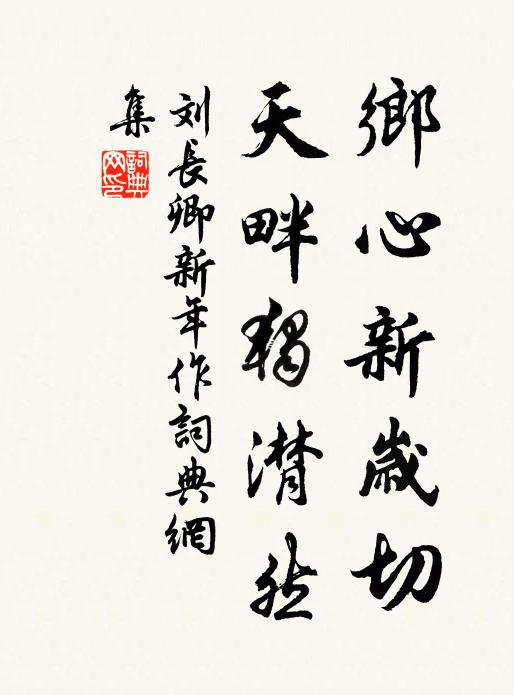 鄉心新歲切
天畔獨潸然
刘長卿新年作詞典網
集
詞典
网印